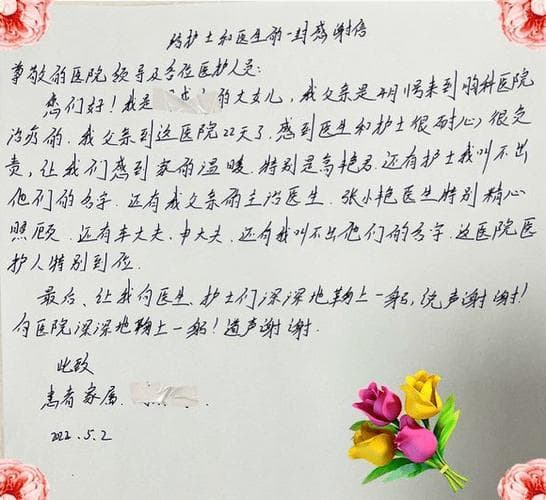 给护士和医生的一封感谢信
尊敬的医院领导及各位医护人员:
您们好!我是 的大女儿,我父亲是4月19号来到胸科医院
治疗的.我父亲到这医院22天了,感到医生和护士很耐心,很负
责,让我们感到家的温暖.特别是高艳君.还有护士我叫不出
他们的名字.还有我父亲的主治医生.张小艳医生特别精心
照顾.还有车大夫.申大夫.还有我叫不出他们的名字.这医院医
护人特别到位.
最后、让我向医生、护士们深深地鞠上一躬,说声谢谢!
向医院深深地鞠上一躬!道声谢谢.
此致
患者家属.
2022.5.2